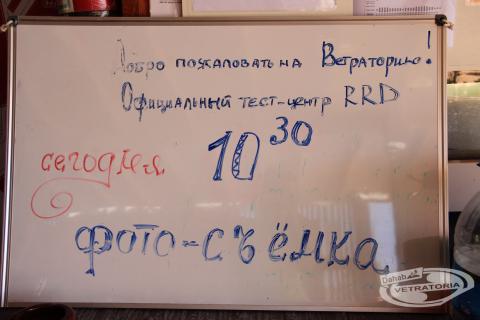 Добро пожаловать на Ветраторию!
Официальный тест-центр RRD
10 30
сегодня
фото-съёмка
Dahab
VETRATORIA